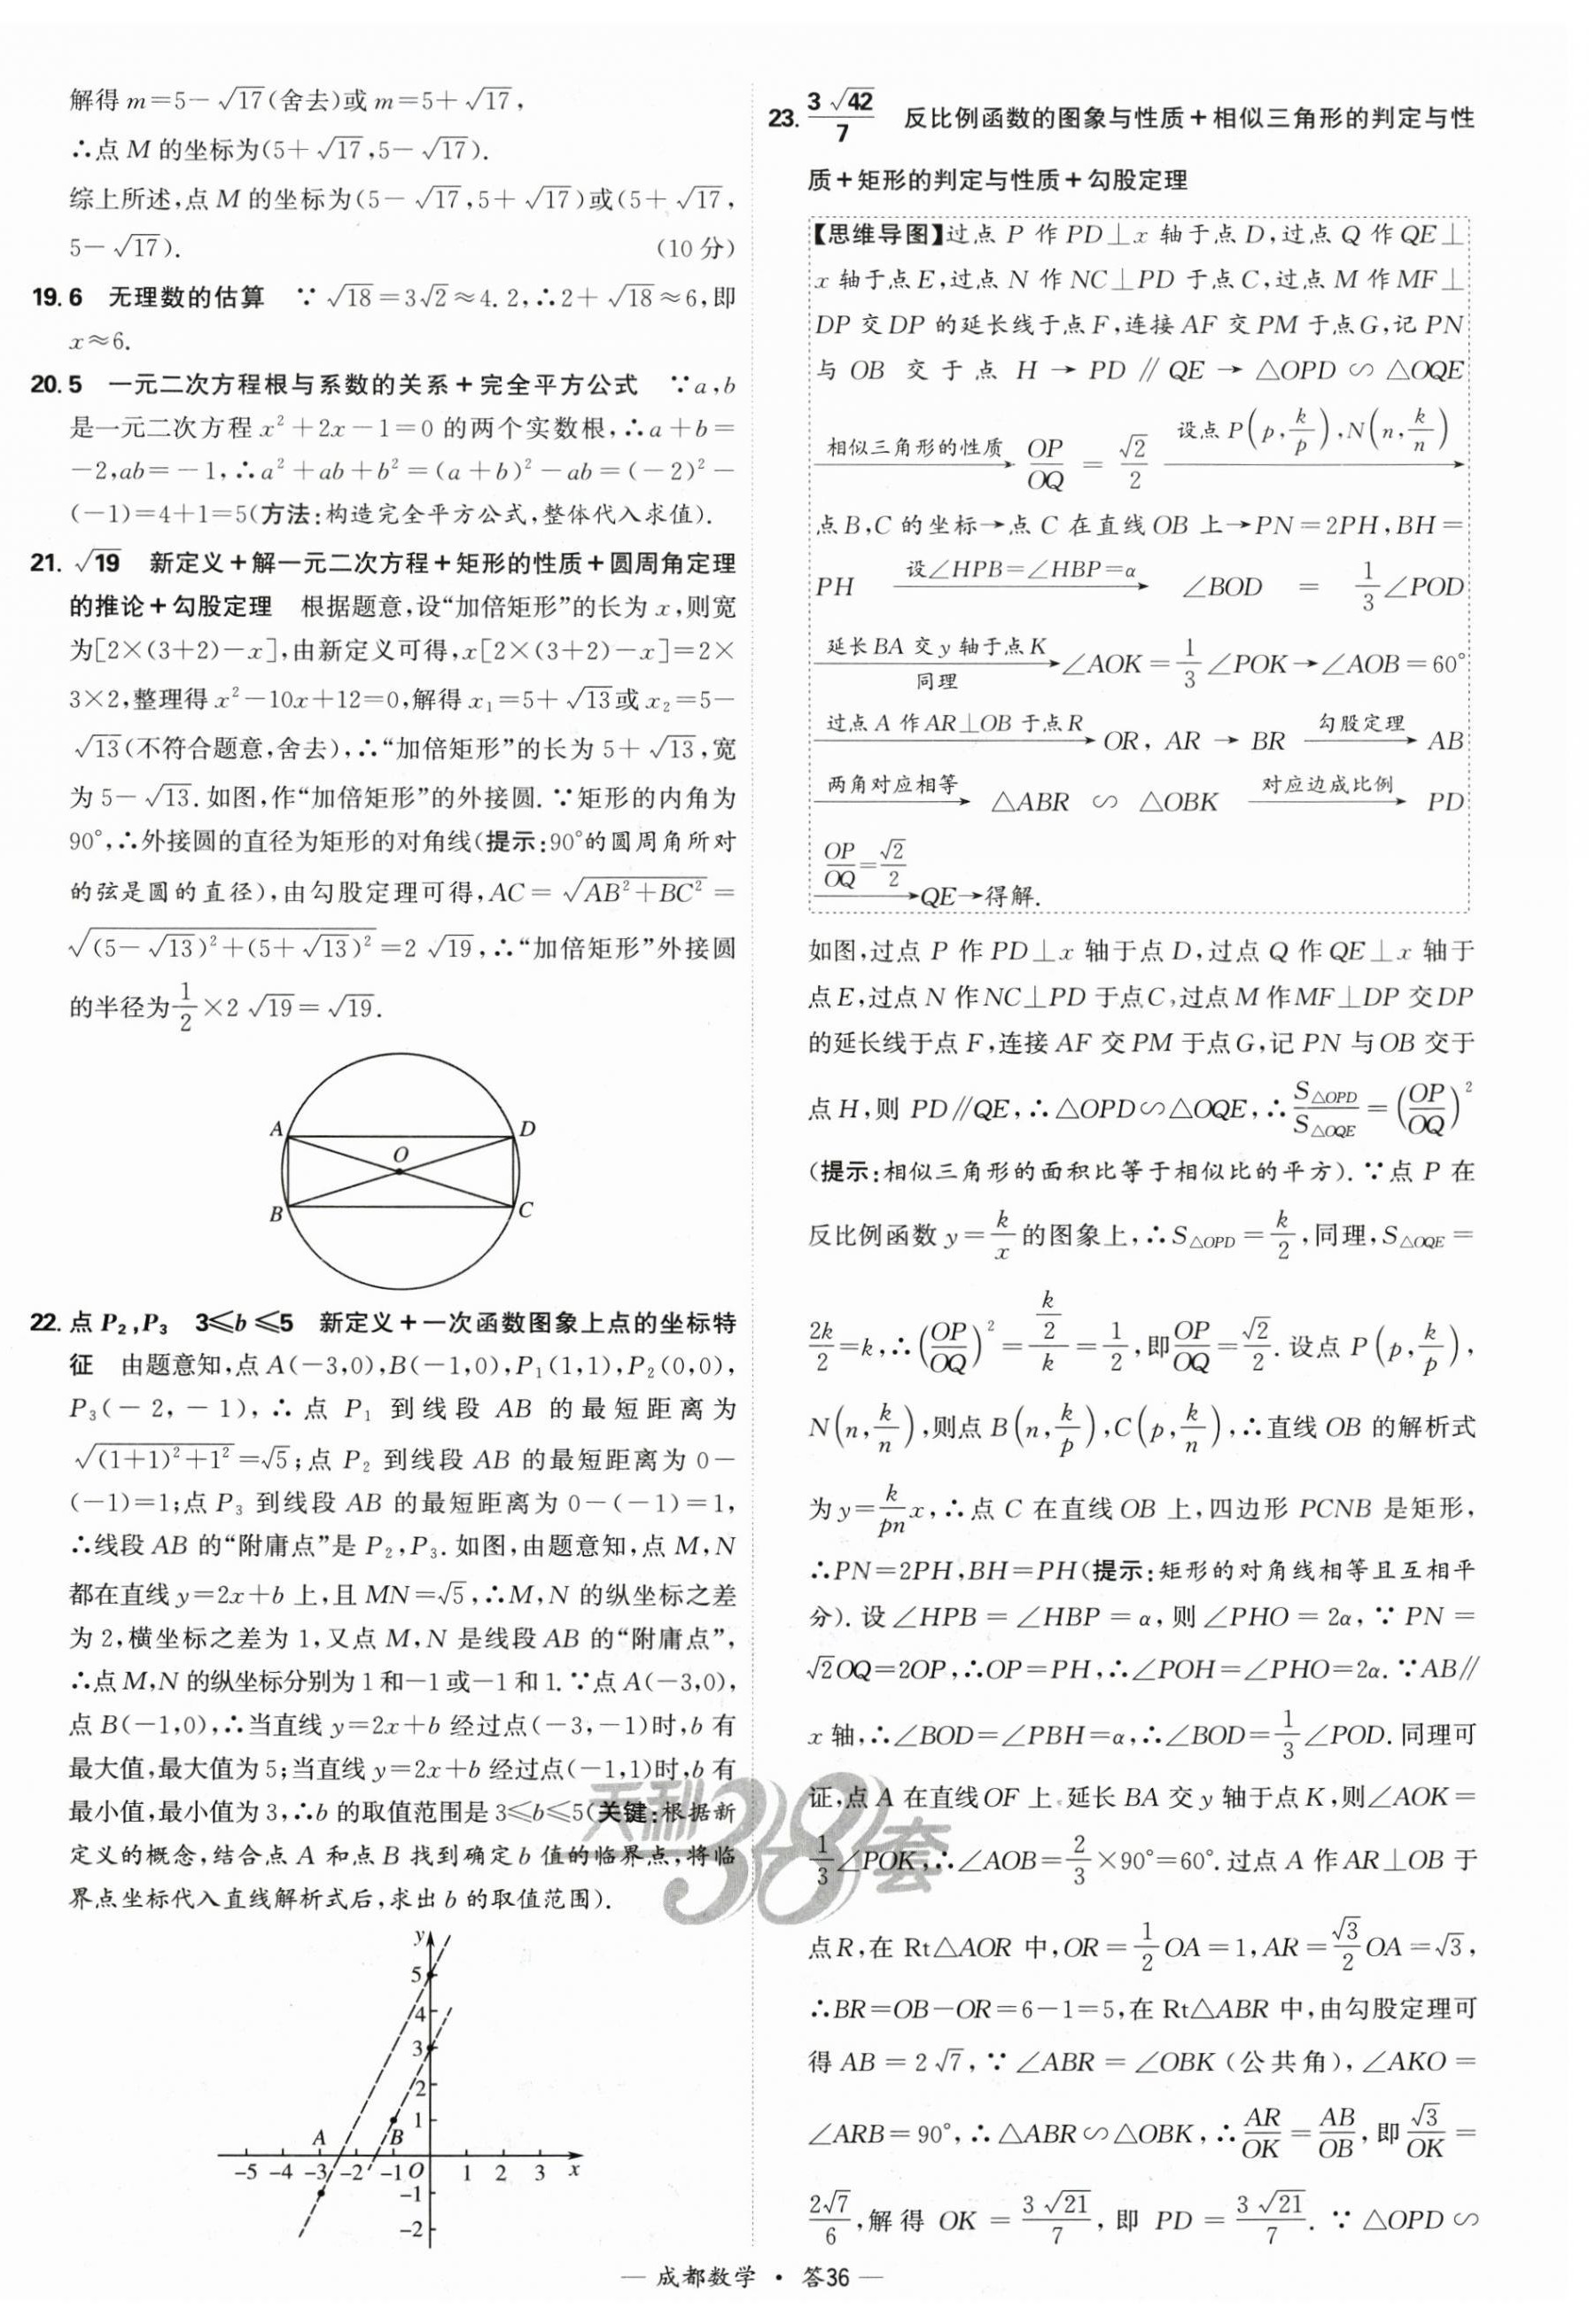 解得 m=5-√17(舍去)或 m=5+√17,
∴点 M 的坐标为(5+√17,5-√17).
综上所述,点 M 的坐标为(5-√17,5+√17)或(5+√17,
5-√17). (10 分)
19. 6 无理数的估算 ∵√18=3√2≈4.2,∴2+√18≈6,即
x≈6.
20. 5 一元二次方程根与系数的关系+完全平方公式 ∵a,b
是一元二次方程 x²+2x-1=0 的两个实数根,∴a+b=
-2,ab=-1,∴a²+ab+b²=(a+b)²-ab=(-2)²-
(-1)=4+1=5(方法:构造完全平方公式,整体代入求值).
21. √19 新定义+解一元二次方程+矩形的性质+圆周角定理
的推论+勾股定理 根据题意,设“加倍矩形”的长为 x,则宽
为[2×(3+2)-x],由新定义可得,x[2×(3+2)-x]=2×
3×2,整理得 x²-10x+12=0,解得 x₁=5+√13或 x₂=5-
√13(不符合题意,舍去),∴“加倍矩形”的长为 5+√13,宽
为 5-√13.如图,作“加倍矩形”的外接圆.∵矩形的内角为
90°,∴外接圆的直径为矩形的对角线(提示:90°的圆周角所对
的弦是圆的直径),由勾股定理可得,AC=√(AB²+BC²)=
√((5-√13)²+(5+√13)²)=2√19,∴“加倍矩形”外接圆
的半径为1/2×2√19=√19.
A D
O
B C
22. 点 P₂,P₃ 3≤b≤5 新定义+一次函数图象上点的坐标特
征 由题意知,点 A(-3,0),B(-1,0),P₁(1,1),P₂(0,0),
P₃(-2,-1),∴点 P₁ 到线段 AB 的最短距离为
√((1+1)²+1²)=√5;点 P₂ 到线段 AB 的最短距离为 0-
(-1)=1;点 P₃ 到线段 AB 的最短距离为 0-(-1)=1,
∴线段 AB 的“附庸点”是 P₂,P₃.如图,由题意知,点 M,N
都在直线 y=2x+b 上,且 MN=√5,∴M,N 的纵坐标之差
为 2,横坐标之差为 1,又点 M,N 是线段 AB 的“附庸点”,
∴点 M,N 的纵坐标分别为 1 和-1 或-1 和 1.∵点 A(-3,0),
点 B(-1,0),∴当直线 y=2x+b 经过点(-3,-1)时,b 有
最大值,最大值为 5;当直线 y=2x+b 经过点(-1,1)时,b 有
最小值,最小值为 3,∴b 的取值范围是 3≤b≤5(关键:根据新
定义的概念,结合点 A 和点 B 找到确定 b 值的临界点,将临
界点坐标代入直线解析式后,求出 b 的取值范围).
y
5
4
3
2
1
A B
-5 -4 -3 -2 -1 O 1 2 3 x
-1
-2
23. 3√42/7 反比例函数的图象与性质+相似三角形的判定与性
质+矩形的判定与性质+勾股定理
【思维导图】过点 P 作 PD⊥x 轴于点 D,过点 Q 作 QE⊥
x 轴于点 E,过点 N 作 NC⊥PD 于点 C,过点 M 作 MF⊥
DP 交 DP 的延长线于点 F,连接 AF 交 PM 于点 G,记 PN
与 OB 交于点 H → PD∥QE → △OPD∽△OQE
相似三角形的性质→ OP/OQ=√2/2 设点 P(p,k/p),N(n,k/n)→
点 B,C 的坐标→点 C 在直线 OB 上→PN=2PH,BH=
PH 设∠HPB=∠HBP=α→ ∠BOD=1/3∠POD
延长 BA 交 y 轴于点 K 同理→∠AOK=1/3∠POK→∠AOB=60°
过点 A 作 AR⊥OB 于点 R→ OR,AR→BR 勾股定理→ AB
两角对应相等→ △ABR∽△OBK 对应边成比例→ PD
OP/OQ=√2/2→QE→得解.
如图,过点 P 作 PD⊥x 轴于点 D,过点 Q 作 QE⊥x 轴于
点 E,过点 N 作 NC⊥PD 于点 C,过点 M 作 MF⊥DP 交 DP
的延长线于点 F,连接 AF 交 PM 于点 G,记 PN 与 OB 交于
点 H,则 PD∥QE,∴△OPD∽△OQE,∴S△OPD/S△OQE=(OP/OQ)²
(提示:相似三角形的面积比等于相似比的平方).∵点 P 在
反比例函数 y=k/x 的图象上,∴S△OPD=k/2,同理,S△OQE=
2k/2=k,∴(OP/OQ)²=(k/2)/k=1/2,即OP/OQ=√2/2.设点 P(p,k/p),
N(n,k/n),则点 B(n,k/p),C(p,k/n),∴直线 OB 的解析式
为 y=k/pn x,∴点 C 在直线 OB 上,四边形 PCNB 是矩形,
∴PN=2PH,BH=PH(提示:矩形的对角线相等且互相平
分).设∠HPB=∠HBP=α,则∠PHO=2α,∵PN=
√2OQ=2OP,∴OP=PH,∴∠POH=∠PHO=2α.∵AB∥
x 轴,∴∠BOD=∠PBH=α,∴∠BOD=1/3∠POD.同理可
证,点 A 在直线 OF 上.延长 BA 交 y 轴于点 K,则∠AOK=
1/3∠POK,∴∠AOB=2/3×90°=60°.过点 A 作 AR⊥OB 于
点 R,在 Rt△AOR 中,OR=1/2OA=1,AR=√3/2OA=√3,
∴BR=OB-OR=6-1=5,在 Rt△ABR 中,由勾股定理可
得 AB=2√7,∵∠ABR=∠OBK(公共角),∠AKO=
∠ARB=90°,∴△ABR∽△OBK,∴AR/OK=AB/OB,即√3/OK=
2√7/6,解得 OK=3√21/7,即 PD=3√21/7.∵△OPD∽
天利38套
— 成都数学 · 答36 —